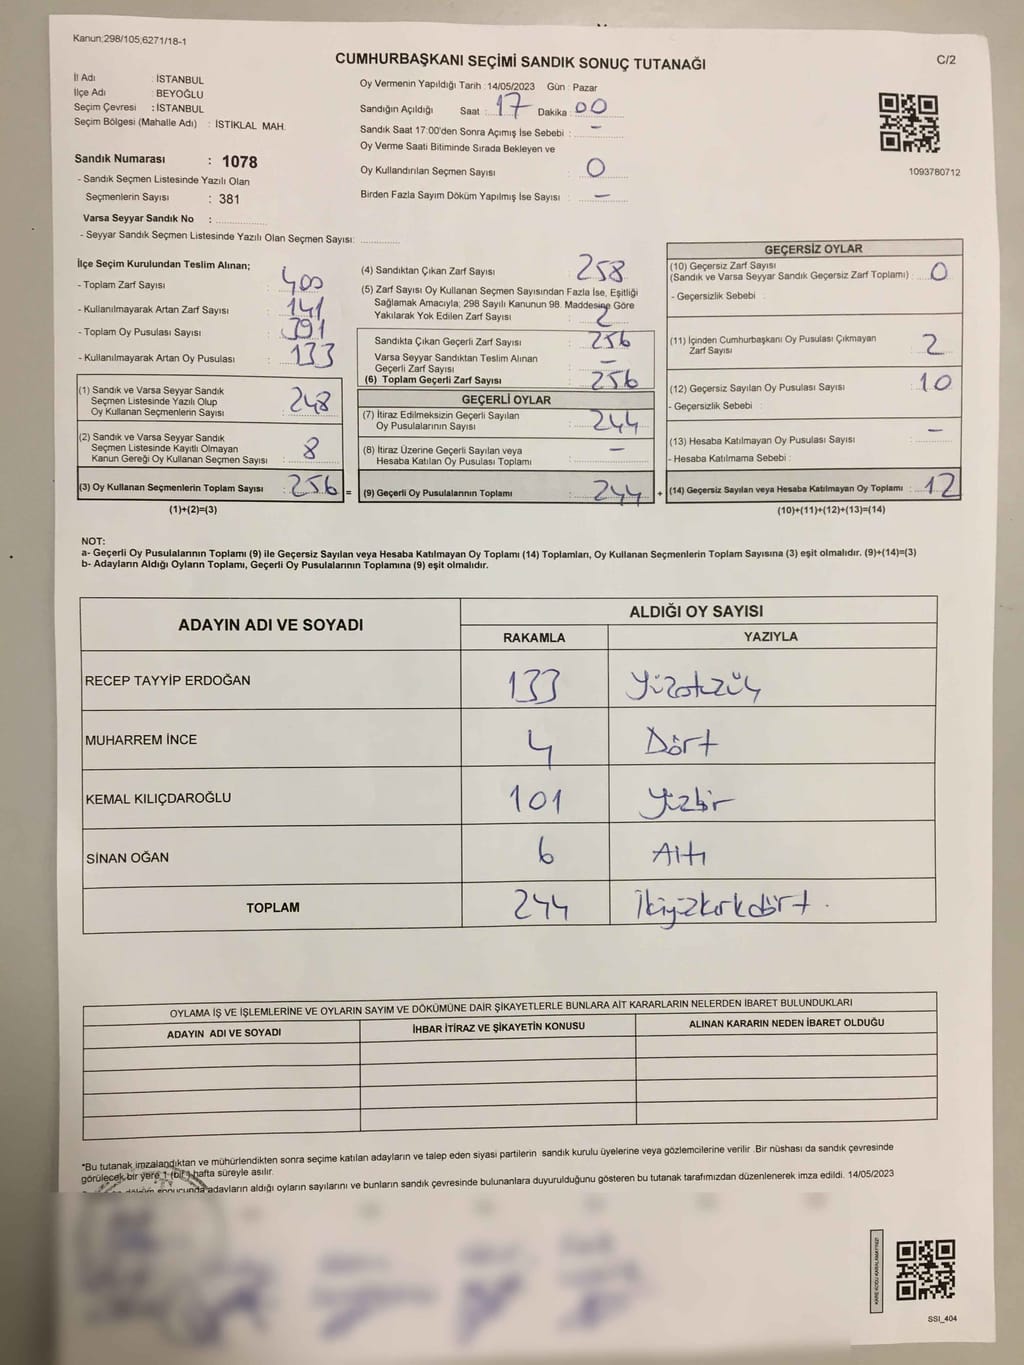 Kanun;298/105;6271/18-1
CUMHURBAŞKANI SEÇİMİ SANDIK SONUÇ TUTANAĞI
C/2
İl Adı : İSTANBUL
İlçe Adı : BEYOĞLU
Seçim Çevresi : İSTANBUL
Seçim Bölgesi (Mahalle Adı) : İSTİKLAL MAH.
Sandık Numarası : 1078
- Sandık Seçmen Listesinde Yazılı Olan
Seçmenlerin Sayısı : 381
Varsa Seyyar Sandık No :
- Seyyar Sandık Seçmen Listesinde Yazılı Olan Seçmen Sayısı:
Oy Vermenin Yapıldığı Tarih : 14/05/2023 Gün : Pazar
Sandığın Açıldığı Saat : 17 Dakika : 00
Sandık Saat 17:00'den Sonra Açımış İse Sebebi : -
Oy Verme Saati Bitiminde Sırada Bekleyen ve
Oy Kullandırılan Seçmen Sayısı : 0
Birden Fazla Sayım Döküm Yapılmış İse Sayısı : -
1093780712
İlçe Seçim Kurulundan Teslim Alınan;
- Toplam Zarf Sayısı : 400
- Kullanılmayarak Artan Zarf Sayısı : 141
- Toplam Oy Pusulası Sayısı : 391
- Kullanılmayarak Artan Oy Pusulası : 133
(1) Sandık ve Varsa Seyyar Sandık
Seçmen Listesinde Yazılı Olup
Oy Kullanan Seçmenlerin Sayısı : 248
(2) Sandık ve Varsa Seyyar Sandık
Seçmen Listesinde Kayıtlı Olmayan
Kanun Gereği Oy Kullanan Seçmen Sayısı : 8
(3) Oy Kullanan Seçmenlerin Toplam Sayısı : 256 =
(1)+(2)=(3)
(4) Sandıktan Çıkan Zarf Sayısı : 258
(5) Zarf Sayısı Oy Kullanan Seçmen Sayısından Fazla İse, Eşitliği
Sağlamak Amacıyla; 298 Sayılı Kanunun 98. Maddesine Göre
Yakılarak Yok Edilen Zarf Sayısı : 2
Sandıkta Çıkan Geçerli Zarf Sayısı : 256
Varsa Seyyar Sandıktan Teslim Alınan
Geçerli Zarf Sayısı : -
(6) Toplam Geçerli Zarf Sayısı : 256
GEÇERLİ OYLAR
(7) İtiraz Edilmeksizin Geçerli Sayılan
Oy Pusulalarının Sayısı : 244
(8) İtiraz Üzerine Geçerli Sayılan veya
Hesaba Katılan Oy Pusulası Toplamı : -
(9) Geçerli Oy Pusulalarının Toplamı : 244 +
GEÇERSİZ OYLAR
(10) Geçersiz Zarf Sayısı
(Sandık ve Varsa Seyyar Sandık Geçersiz Zarf Toplamı) : 0
- Geçersizlik Sebebi :
(11) İçinden Cumhurbaşkanı Oy Pusulası Çıkmayan
Zarf Sayısı : 2
(12) Geçersiz Sayılan Oy Pusulası Sayısı : 10
- Geçersizlik Sebebi :
(13) Hesaba Katılmayan Oy Pusulası Sayısı : -
- Hesaba Katılmama Sebebi :
(14) Geçersiz Sayılan veya Hesaba Katılmayan Oy Toplamı : 12
(10)+(11)+(12)+(13)=(14)
NOT:
a- Geçerli Oy Pusulalarının Toplamı (9) ile Geçersiz Sayılan veya Hesaba Katılmayan Oy Toplamı (14) Toplamları, Oy Kullanan Seçmenlerin Toplam Sayısına (3) eşit olmalıdır. (9)+(14)=(3)
b- Adayların Aldığı Oyların Toplamı, Geçerli Oy Pusulalarının Toplamına (9) eşit olmalıdır.
ADAYIN ADI VE SOYADI
ALDIĞI OY SAYISI
RAKAMLA YAZIYLA
RECEP TAYYİP ERDOĞAN 133 Yüzotuzüç
MUHARREM İNCE 4 Dört
KEMAL KILIÇDAROĞLU 101 Yüzbir
SİNAN OĞAN 6 Altı
TOPLAM 244 İkiyüzkırkdört .
OYLAMA İŞ VE İŞLEMLERİNE VE OYLARIN SAYIM VE DÖKÜMÜNE DAİR ŞİKAYETLERLE BUNLARA AİT KARARLARIN NELERDEN İBARET BULUNDUKLARI
ADAYIN ADI VE SOYADI İHBAR İTİRAZ VE ŞİKAYETİN KONUSU ALINAN KARARIN NEDEN İBARET OLDUĞU
*Bu tutanak imzalandıktan ve mühürlendikten sonra seçime katılan adayların ve talep eden siyasi partilerin sandık kurulu üyelerine veya gözlemcilerine verilir .Bir nüshası da sandık çevresinde
görülecek bir yere 1 (bir) hafta süreyle asılır.
döküm sonucunda adayların aldığı oyların sayılarını ve bunların sandık çevresinde bulunanlara duyurulduğunu gösteren bu tutanak tarafımızdan düzenlenerek imza edildi. 14/05/2023
KARE KODU KARALAMAYINIZ!
SSİ_404